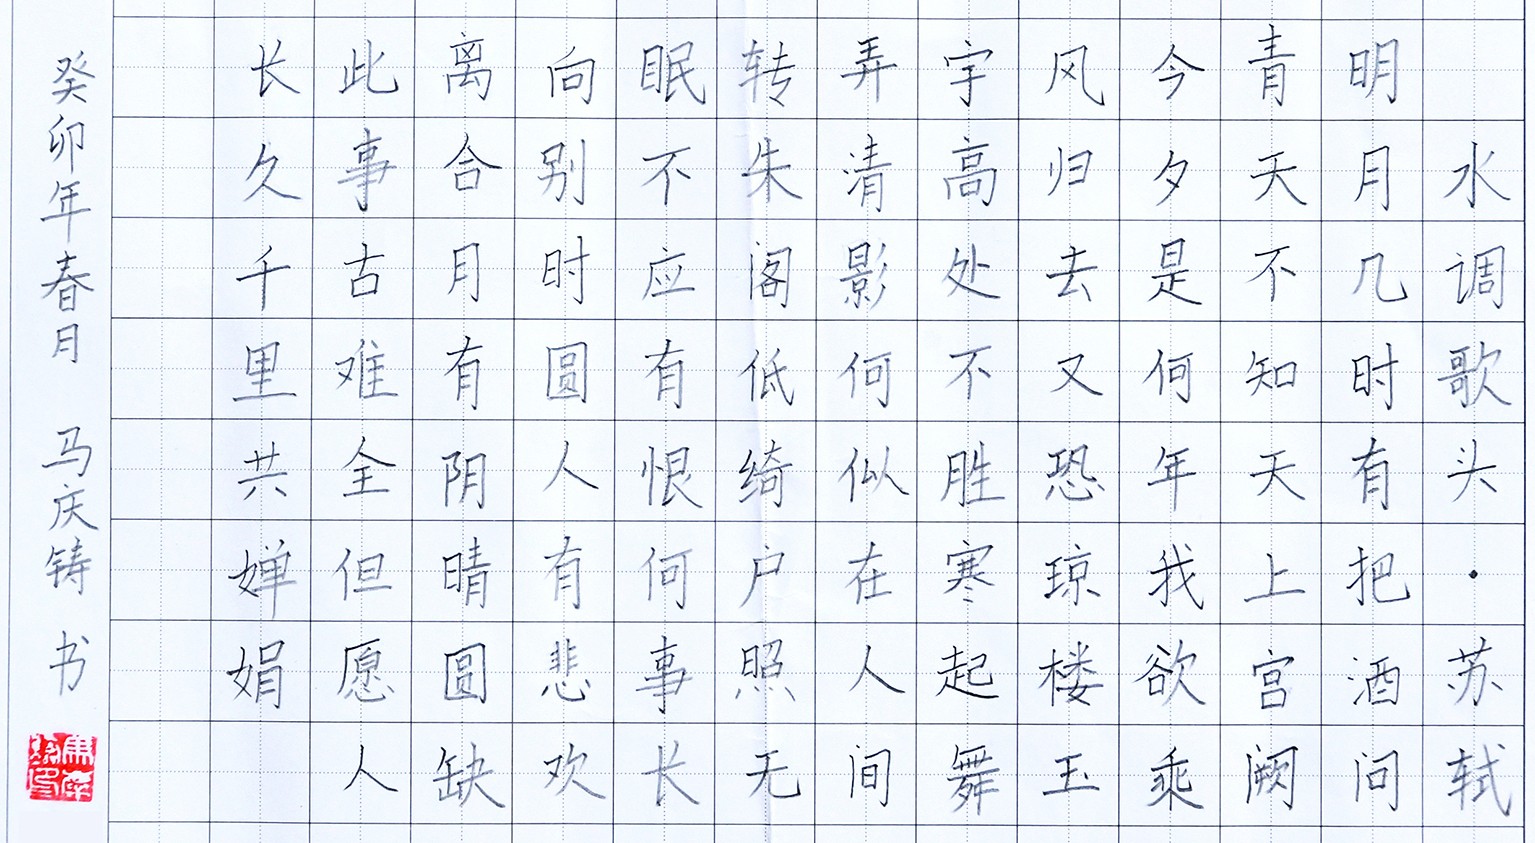 水调歌头·苏轼
明月几时有把酒问
青天不知天上宫阙
今夕是何年我欲乘
风归去又恐琼楼玉
宇高处不胜寒起舞
弄清影何似在人间
转朱阁低绮户照无
眠不应有恨何事长
向别时圆人有悲欢
离合月有阴晴圆缺
此事古难全但愿人
长久千里共婵娟
癸卯年春月 马庆铸 书